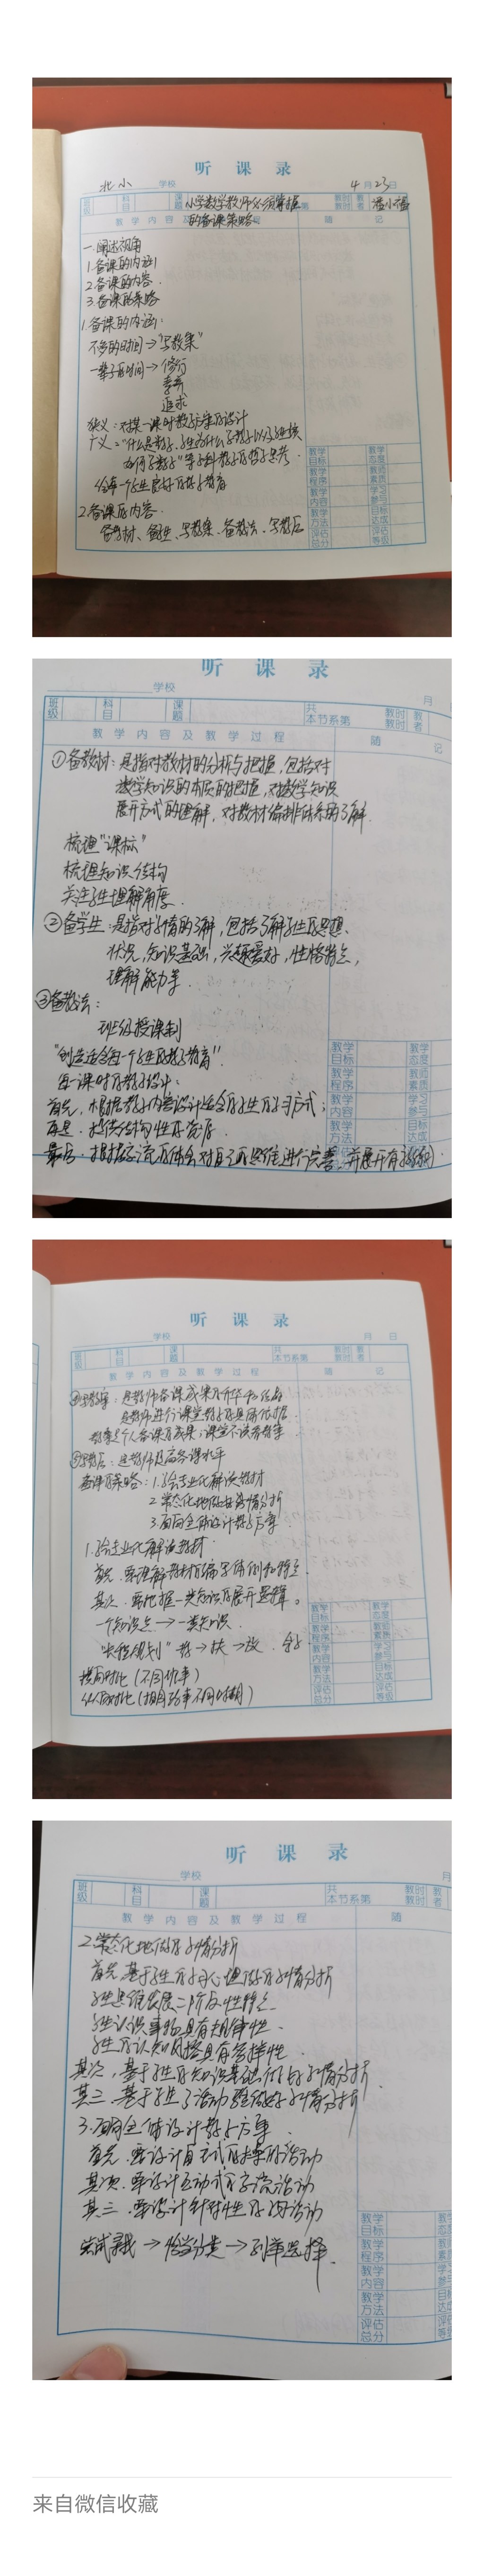 听 课 录
北小 学校 4 月 23 日
班级 科目 课题 小学数学教师必须掌握的备课策略 第 教时 教时 教者 潘小福
教 学 内 容 及 教 学 过程 随 记
一.阐述视角
1.备课的内涵
2.备课的内容.
3.备课的策略
1.备课的内涵:
不多的时间→"写教案"
一辈子的时间→修行
追求
狭义:对某一课时教学方案的设计
广义:"什么是教学.学生为什么学
如何学数学"等
给每一个学生良好的数学教育
2.备课的内容.
备教材、备学生、写教案、备教法、写教后
教学目标 教学态度
教学程序 教师素质
教学内容 学生参与
教学方法 目标达成
评估总分 评估等级
听 课 录
学校 月
班级 科目 课题 共 本节系第 教时 教时 教者
教 学 内 容 及 教 学 过 程 随 记
①备教材:是指对教材的分析与把握,包括对
数学知识的本质的把握,对数学知识
展开方式的理解,对教材编排体系的了解.
梳理"课标"
梳理知识结构
关注学生理解角度.
②备学生:是指对学情的了解,包括了解学生的思想.
状况,知识基础,兴趣爱好,性格特点,
理解能力等.
③备教法:
班级授课制
"创造适合每一个学生的数学教育".
每一课时的教学设计:
首先,根据教学内容设计适合的学生的学习方式;
再是.提供结构性的资源.
最后.根据交流的体会对自己的思维进行完善,并展开有
教学目标 教学态度
教学程序 教师素质
教学内容 学生参与
教学方法 目标达成
听 课 录
学校 月 日
班级 科目 课题 共 本节系第 教时 教时 教者
教 学 内 容 及 教 学 过 程 随 记
④写教案:是教师备课成果的
是教师进行课堂教学的重要依据.
教案是个人备课的成果,课堂不该背教案
⑤写教后:是教师提高备课水平
备课的策略:1.结专业化解读教材
2.常态化地做好学情分析
3.面向全体设计教学方案
1.结专业化解读教材.
首先.要理解教材的编写体例和特点.
其次.要把握一类知识的展开逻辑。
一个知识点→一类知识.
"长程规划" 教→扶→放.
横向对比(不同版本)
纵向对比(相同版本不同时期)
教学目标 教学态度
教学程序 教师素质
教学内容 学生参与
教学方法 目标达成
评估总分 评估等级
听 课 录
学校 月
班级 科目 课题 共 本节系第 教时 教时 教
教 学 内 容 及 教 学 过 程 随
2.常态化地做好学情分析
首先.基于学生的身心规律做好学情分析
学生思维发展的阶段性特点.
学生认识事物具有规律性.
学生的认知风格具有多样性.
其次,基于学生的知识基础做好学情分析.
其三.基于学生的活动经验做好学情分析
3.面向全体设计教学方案.
首先.要设计自主式的探索的活动
其次.要设计互动式的交流活动
其三.要设计针对性的练习活动
尝试寻找→恰当分类→列举选择.
教学目标 教
教学程序 教
教学内容 学
教学方法 目
评估总分 评
来自微信收藏